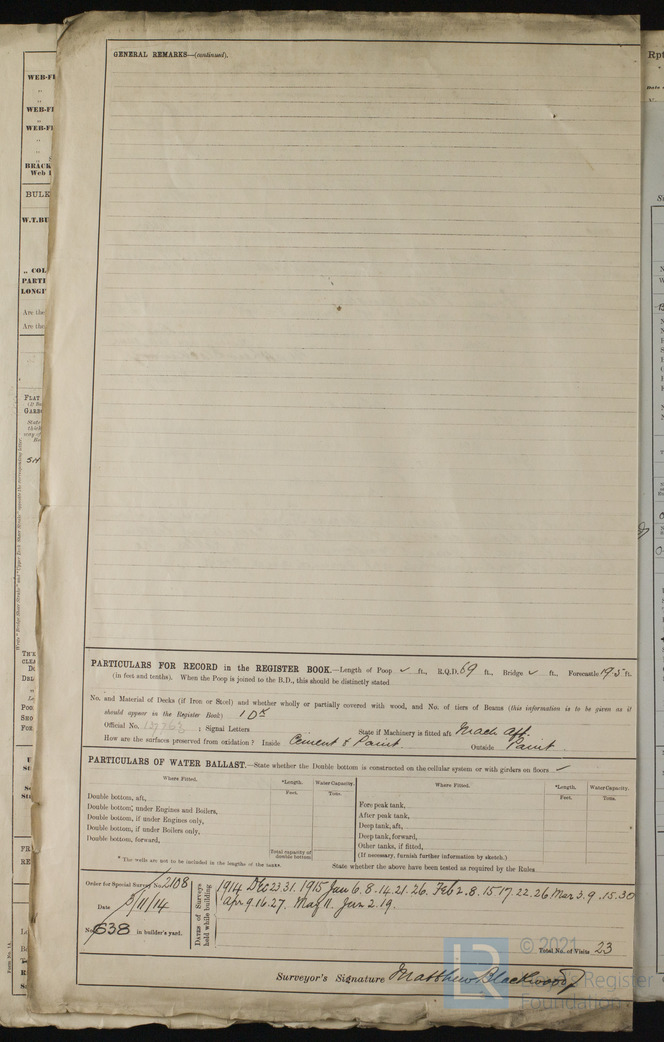 GENERAL REMARKS—(continued).
PARTICULARS FOR RECORD in the REGISTER BOOK.—Length of Poop ✓ ft., R.Q.D. 69 ft., Bridge ✓ ft., Forecastle 19.5 ft.
(in feet and tenths). When the Poop is joined to the B.D., this should be distinctly stated
No. and Material of Decks (if Iron or Steel) and whether wholly or partially covered with wood, and No. of tiers of Beams (this information is to be given as it
should appear in the Register Book) 1 Dk
Official No. ; Signal Letters State if Machinery is fitted aft Mach Aft.
How are the surfaces preserved from oxidation? Inside Cement & Paint Outside Paint
PARTICULARS OF WATER BALLAST.—State whether the Double bottom is constructed on the cellular system or with girders on floors ✓
Where Fitted. *Length. Water Capacity. Where Fitted. *Length. Water Capacity.
Feet. Tons. Feet. Tons.
Double bottom, aft, Fore peak tank,
Double bottom, under Engines and Boilers, After peak tank,
Double bottom, if under Engines only, Deep tank, aft,
Double bottom, if under Boilers only, Deep tank, forward,
Double bottom, forward, Other tanks, if fitted,
Total capacity of double bottom (If necessary, furnish further information by sketch.)
* The wells are not to be included in the lengths of the tanks. State whether the above have been tested as required by the Rules
Order for Special Survey No. 2108
Date 3/11/14
No. 638 in builder's yard.
Dates of Surveys held while building
1914 Dec 23.31. 1915 Jan 6.8.14.21.26. Feb 2.8.15.17.22.26 Mar 3.9.15.30
Apr 9.16.27. May 11. Jun 2.19.
Total No. of Visits 23
Surveyor's Signature Matthew Blackwood
© 2021
LR Register
Foundation
WEB-FR
WEB-FR
WEB-FR
BRACK
Web
BULK
W.T.BU
„ COL
PARTI
LONGI
Are the
Are the
FLAT
Rpt